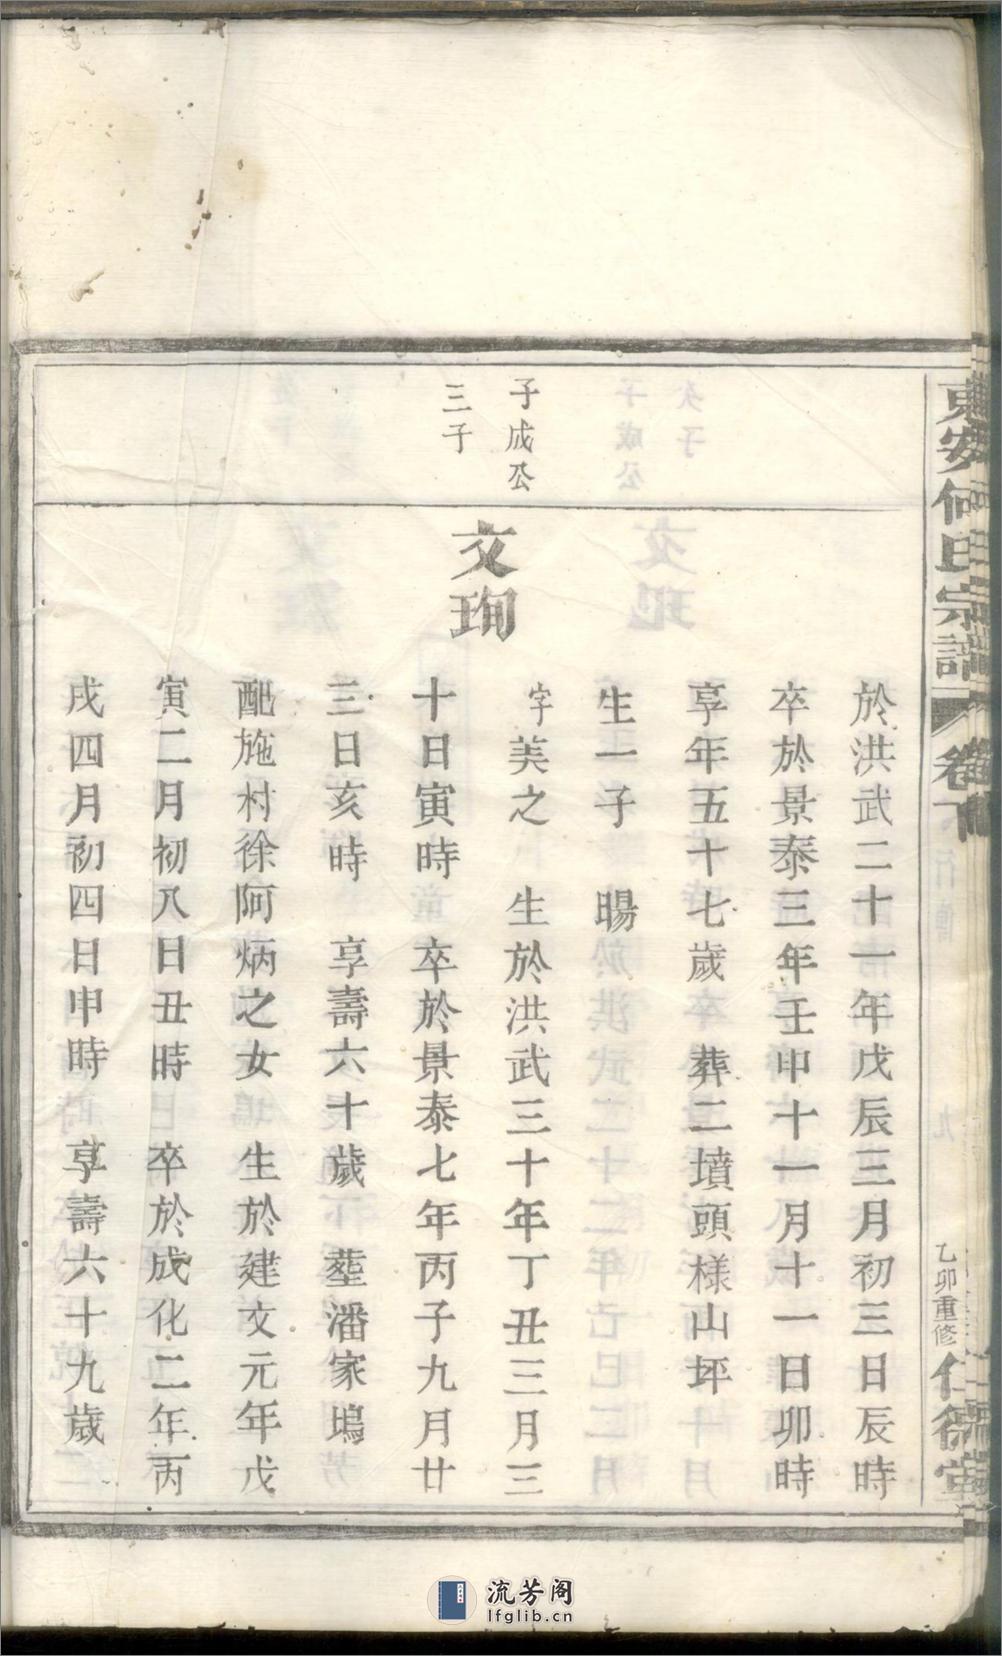 東安何氏宗譜
卷
乙卯重修
於洪武二十一年戊辰三月初三日辰時
卒於景泰三年壬申十一月十一日卯時
享年五十七歲 葬二墳頭樣山坪
生一子 暘
子成公
三子
文珣
字美之 生於洪武三十年丁丑三月三
十日寅時 卒於景泰七年丙子九月廿
三日亥時 享壽六十歲 塟潘家塢
配施村徐阿炳之女 生於建文元年戊
寅二月初八日丑時 卒於成化二年丙
戌四月初四日申時 享壽六十九歲
流芳阁
lfglib.cn